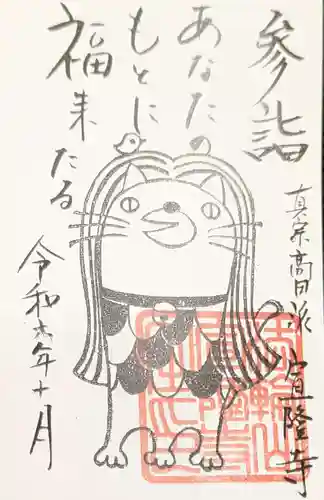 参詣
あなたの
もとに
福来たる
真宗高田派 宣隆寺
令和六年十月